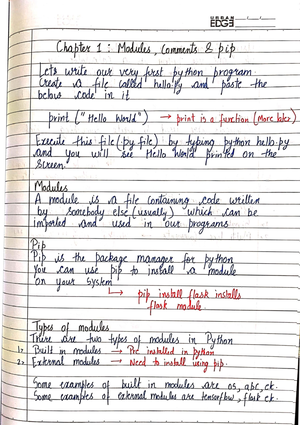 Chapter 1 : Modules, Comments & pip
Lets write our very first python program.
Create a file called hello.py and paste the
below code in it
print ("Hello World") → print is a function (More later)
Execute this file (.py file) by typing python hello.py
and you will see Hello World printed on the
screen.
Modules
A module is a file containing code written
by somebody else (usually) which can be
imported and used in our programs
Pip
Pip is the package manager for python
You can use pip to install a module
on your system
→ pip install flask installs
flask module
Types of modules
There are two types of modules in Python
1. Built in modules → Pre installed in python
2. External modules → Need to install using pip.
Some examples of built in modules are os, abc, etc.
Some examples of external modules are tensorflow, flask etc.